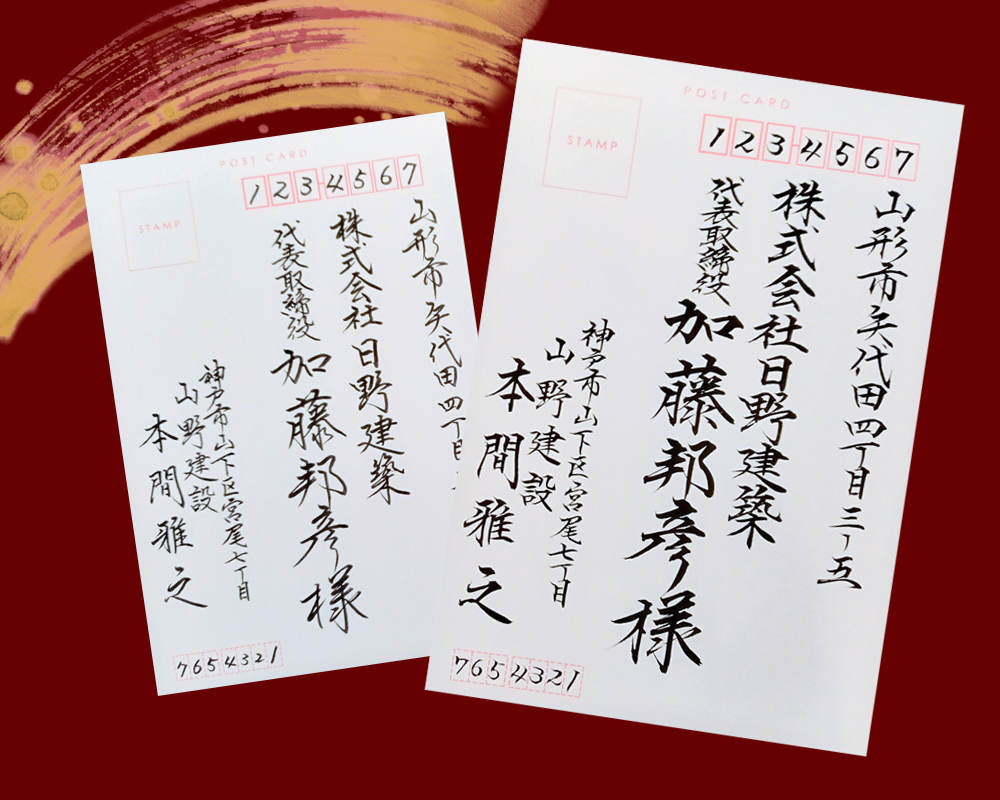 POST CARD
STAMP
1234567
山形市矢代田四丁目
株式会社日野建築
代表取締役
加藤邦彦様
神戸市山下区宮尾七丁目
山野建設
本間雅之
7654321
POST CARD
STAMP
1234567
山形市矢代田四丁目三ー五
株式会社日野建築
代表取締役
加藤邦彦様
神戸市山下区宮尾七丁目
山野建設
本間雅之
7654321